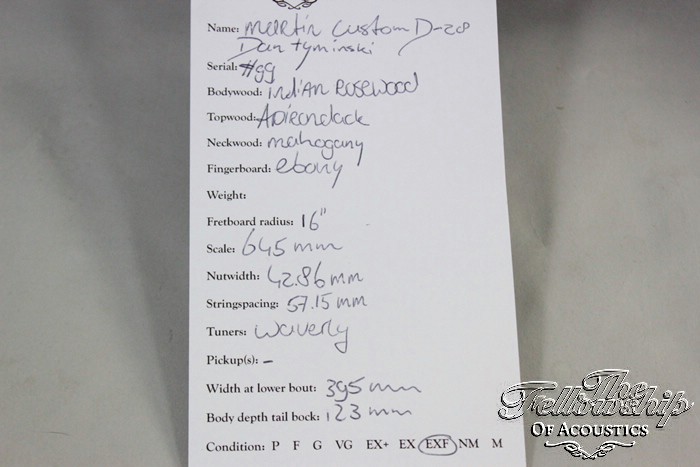 Name: Martin Custom D-28
Dan tyminski
Serial: #99
Bodywood: IndiAn Rosewood
Topwood: Adirondack
Neckwood: mahogany
Fingerboard: ebony
Weight:
Fretboard radius: 16"
Scale: 645 mm
Nutwidth: 42.86 mm
Stringspacing: 57.15 mm
Tuners: Waverly
Pickup(s): –
Width at lower bout: 395 mm
Body depth tail bock: 123 mm
Condition: P F G VG EX+ EX EXF NM M
The
Fellowship
OF ACOUSTICS